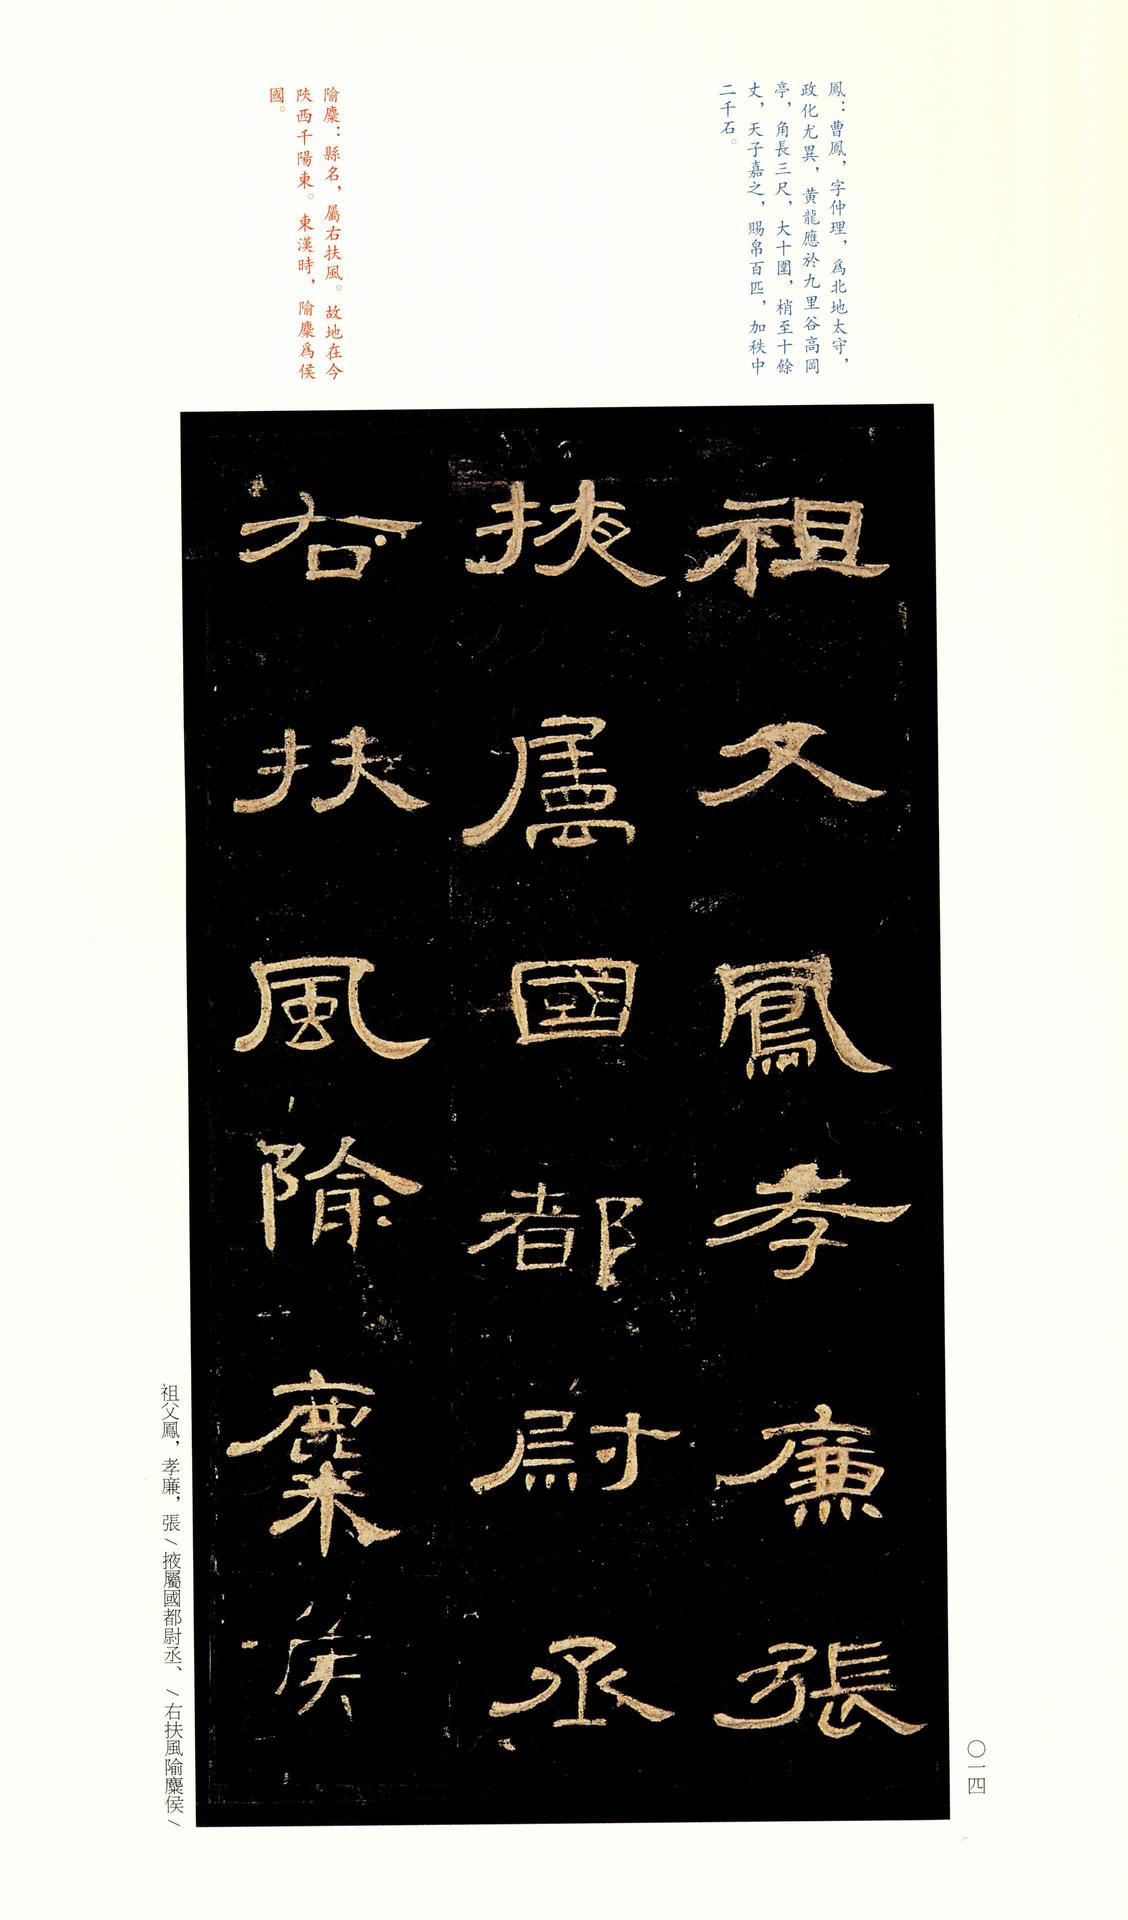 鳳：曹鳳，字仲理，爲北地太守，
政化尤異，黃龍應於九里谷高岡
亭，角長三尺，大十圍，梢至十餘
丈，天子嘉之，賜帛百匹，加秩中
二千石。
隃麋：縣名，屬右扶風。故地在今
陝西千陽東。東漢時，隃麋爲侯
國。
祖父鳳孝廉張
掖屬國都尉丞
右扶風隃麋侯
祖父鳳，孝廉，張／掖屬國都尉丞、／右扶風隃麋侯／
〇一四